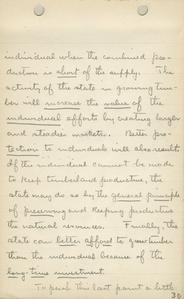 individual when the combined pro-
duction is short of the supply. The
activity of the state in growing tim-
ber will increase the value of the
individual efforts by creating larger
and steadier markets. Better pro-
tection to individuals will also result.
If the individual cannot be made
to keep timberland productive, the
state may do so by the general principle
of preserving and keeping productive
the natural resources. Finally, the
state can better afford to grow timber
than the individual because of the
long-time investment.
To push this last point a little